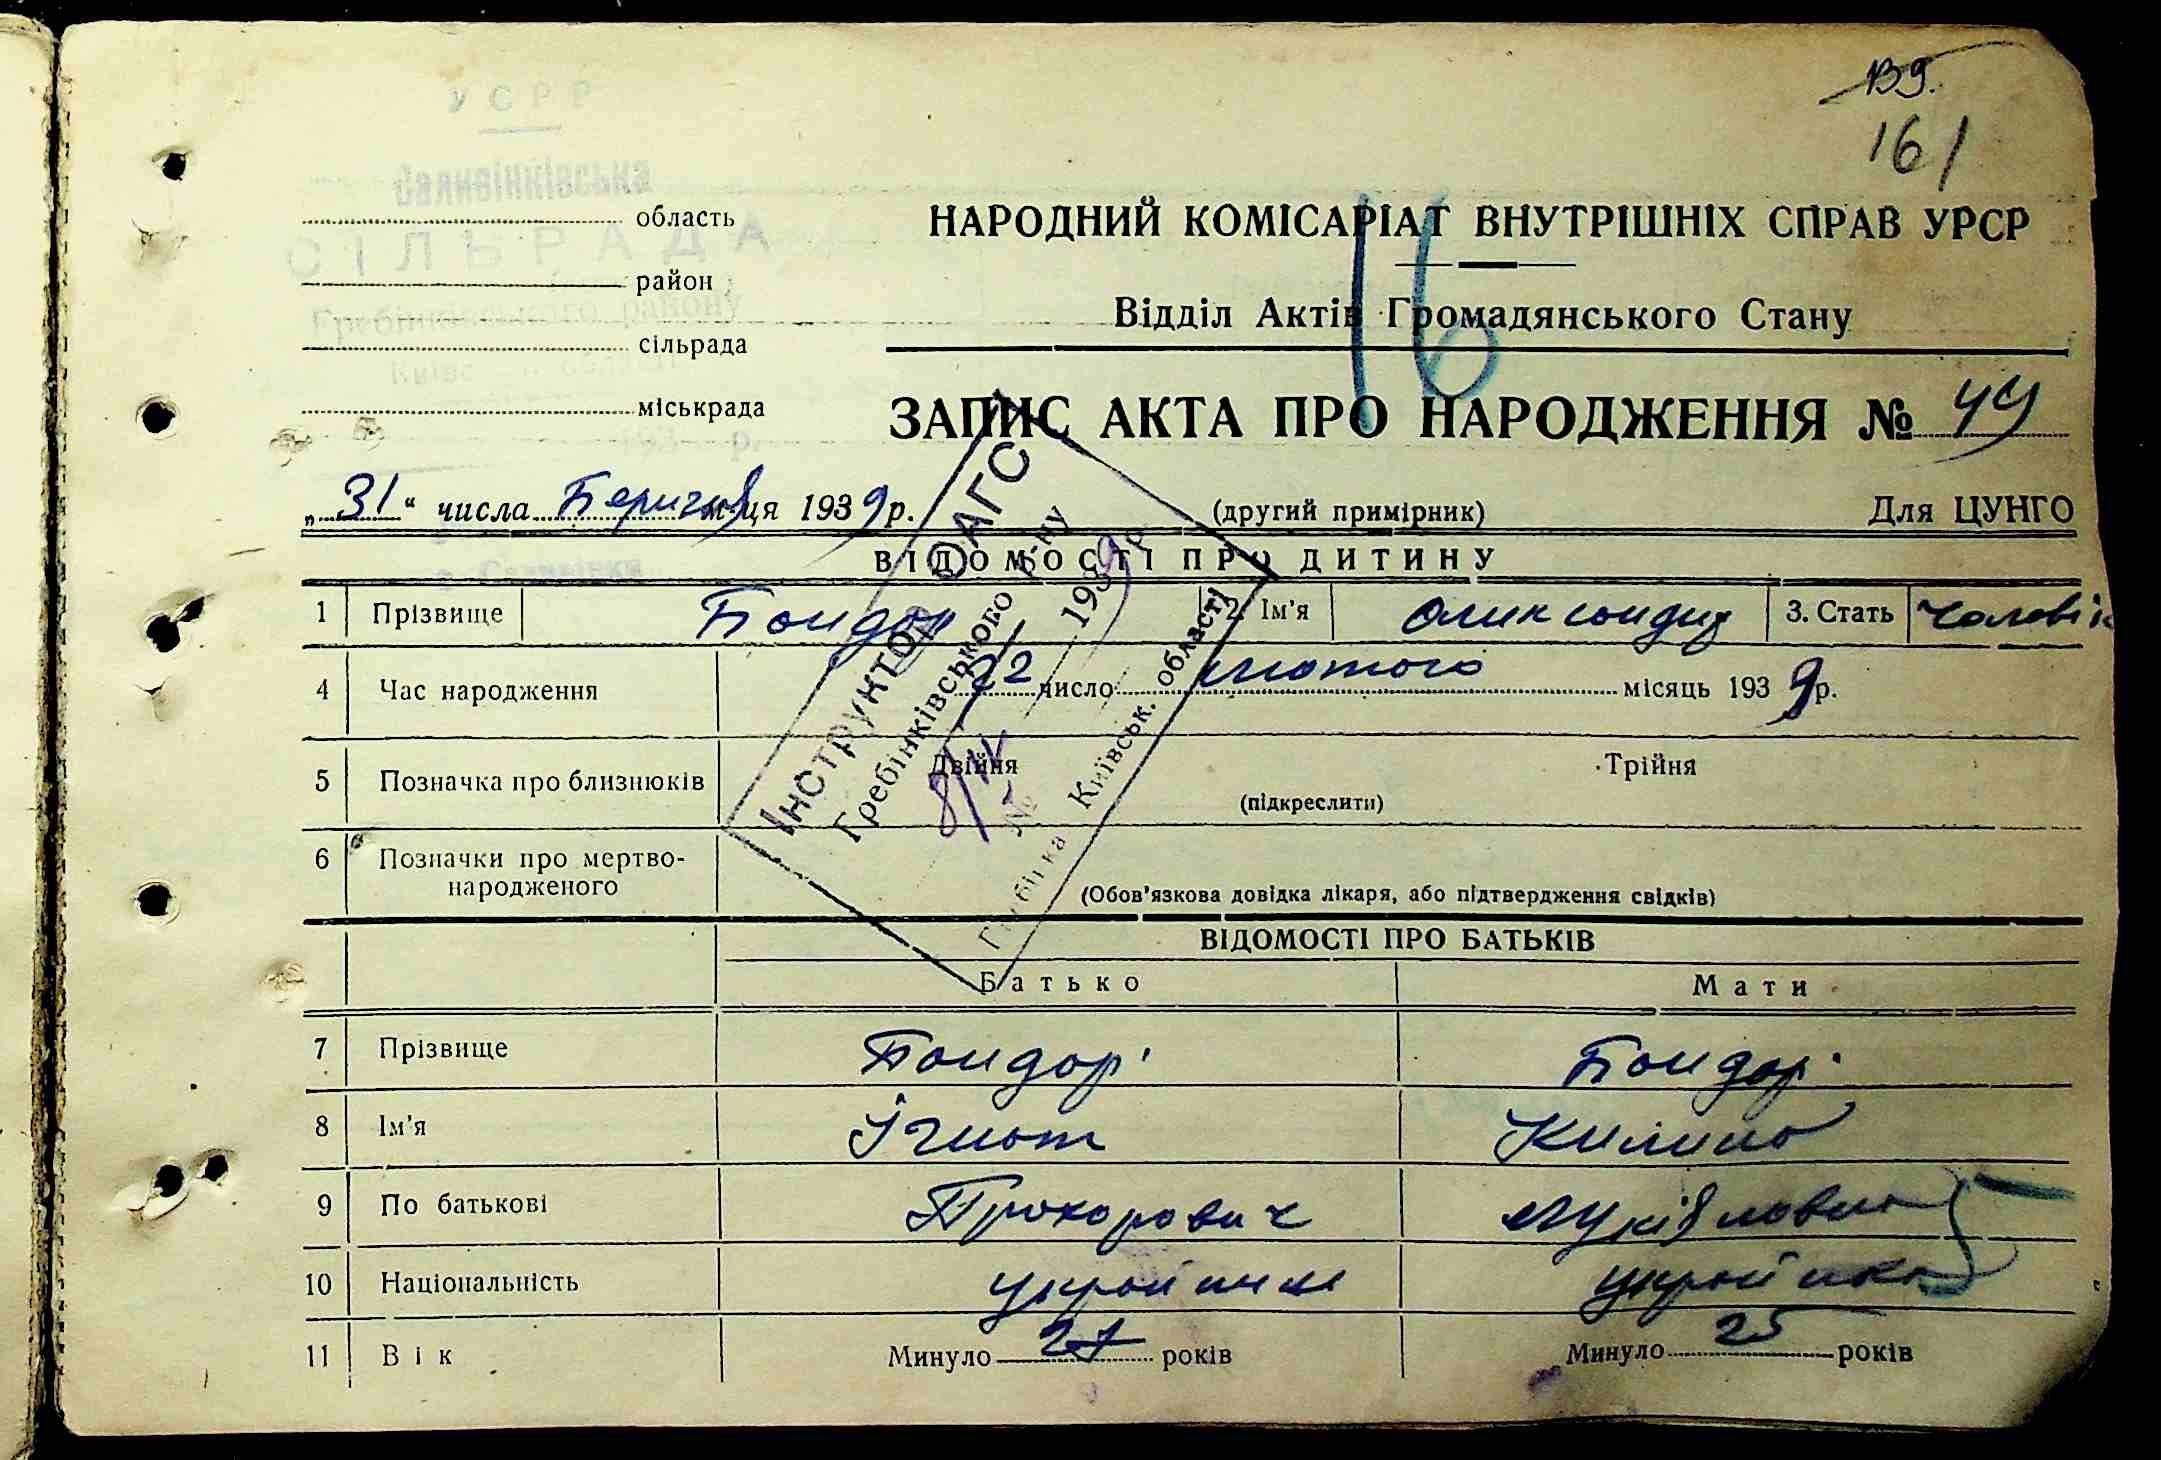 139.
161
УСРР
Саливінківська
область
СІЛЬРАДА
НАРОДНИЙ КОМІСАРІАТ ВНУТРІШНІХ СПРАВ УРСР
район
Гребінківського району
16
Відділ Актів Громадянського Стану
сільрада
міськрада
193 р.
ЗАПИС АКТА ПРО НАРОДЖЕННЯ № 44
„31“ числа Березня м-ця 1939 р. (другий примірник) Для ЦУНГО
с. Саливінки
ВІДОМОСТІ ПРО ДИТИНУ
1 Прізвище Бондар 2. Ім'я Олександр 3. Стать Чоловік
4 Час народження 22 число лютого місяць 1939 р.
5 Позначка про близнюків Двійня Трійня
(підкреслити)
6 Позначки про мертво-
народженого
(Обов'язкова довідка лікаря, або підтвердження свідків)
ІНСТРУКТОР ВАГС
Гребінківського р-ну
1939 р.
№
Гребінка Київськ. області
ВІДОМОСТІ ПРО БАТЬКІВ
Батько Мати
7 Прізвище Бондар Бондар
8 Ім'я Ігнат Килина
9 По батькові Прохорович
10 Національність українец українка
11 Вік Минуло 27 років Минуло 25 років